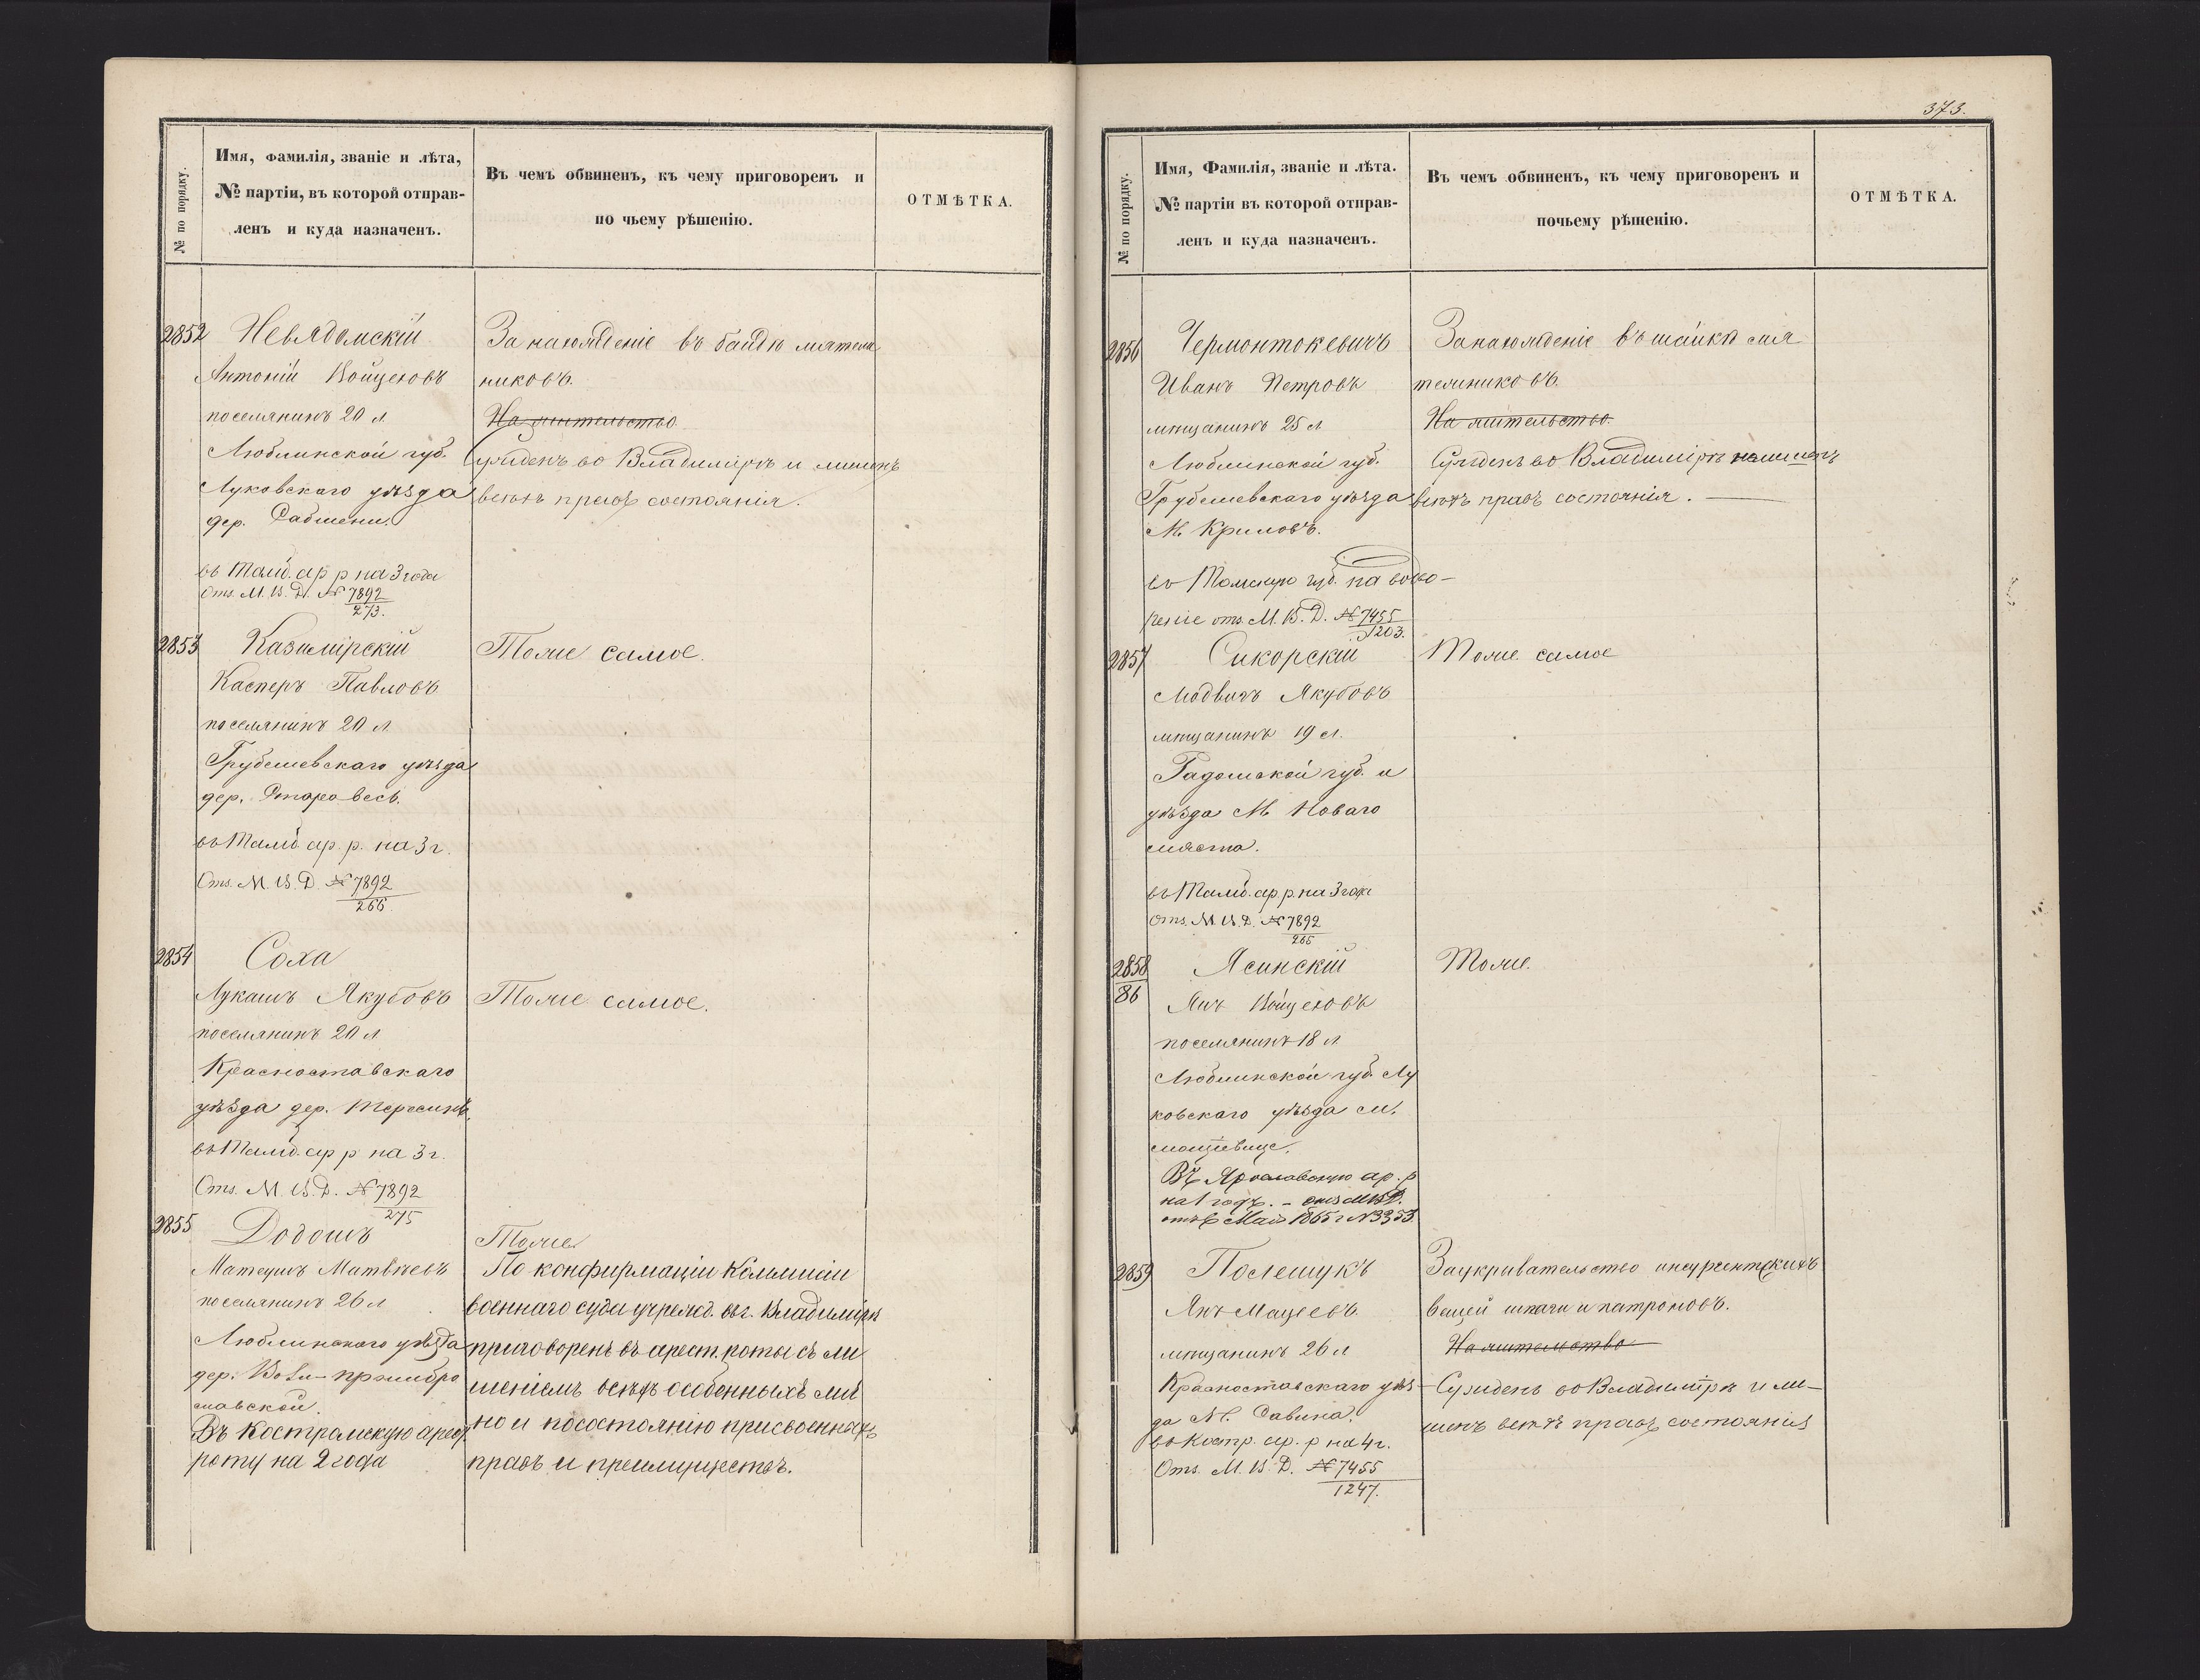 Имя, Фамилія, званіе и лѣта,
№ партіи, въ которой отправ-
ленъ и куда назначенъ.
№ по порядку.
Въ чемъ обвиненъ, къ чему приговоренъ и
по чьему рѣшенію.
ОТМѢТКА.
2852 Невядомскій
Антоній Войцеховъ
поселянинъ 20 л.
Люблинской губ.
Луковскаго уѣзда
дер.
въ Тамб. ар. р. на 3 года
Отз. М. В. Д. № 7892
273.
За нахожденіе въ бандѣ мятеж
никовъ.
На жительство
Сужденъ во Владимірѣ и лишенъ
всѣхъ правъ состоянія.
2853 Казимірскій
Касперъ Павловъ
поселянинъ 20 л
Грубешевскаго уѣзда
дер. Старовесь.
въ Тамб. ар. р. на 3 г.
Отз. М. В. Д. № 7892
266
Тоже самое.
2854 Соха
Лукашъ Якубовъ
поселянинъ 20 л
Красноставскаго
уѣзда дер. Тересинъ.
въ Тамб. ар р на 3 г.
Отз. М. В. Д. № 7892
275
Тоже самое.
2855 Додошъ
Матеушъ Матвѣевъ
поселянинъ 26 л
Люблинскаго уѣзда
дер.
славской.
Въ Костромскую арест.
роту на 2 года
Тоже.
По конфирмаціи Коммисіи
военнаго суда учрежд. въ г. Владимірѣ
приговоренъ въ арест. роты съ ли
шеніемъ всѣхъ особенныхъ лич
но и по состоянію присвоенныхъ
правъ и преимуществъ.
373.
Имя, Фамилія, званіе и лѣта.
№ партіи въ которой отправ-
ленъ и куда назначенъ.
№ по порядку.
Въ чемъ обвиненъ, къ чему приговоренъ и
почьему рѣшенію.
ОТМѢТКА.
2856 Чермонтокевичъ
Иванъ Петровъ
мѣщанинъ 25 л
Люблинской губ.
Грубешевскаго уѣзда
М. Криловъ.
въ Томскую губ. на водво-
реніе отз. М. В. Д. № 7455
1203.
За нахожденіе въ шайкѣ мя
тежниковъ.
На жительство.
Сужденъ во Владимірѣ и лишенъ
всѣхъ правъ состоянія.
2857 Сикорскій
Людвигъ Якубовъ
мѣщанинъ 19 л.
Радомской губ. и
уѣзда М. Новаго
мяста.
въ Тамб. ар р. на 3 года
Отз. М. В. Д. № 7892
265
Тоже самое
2858
86
Ясинскій
Янъ Войцеховъ
поселянинъ 18 л.
Люблинской губ. Лу
ковскаго уѣзда м.
Въ Ярославскую ар. р
на 1 годъ. – отз МВД.
Мая 1865 г №3353.
Тоже.
2859 Полещукъ
Янъ Мацеевъ.
мѣщанинъ 26 л
Красноставскаго уѣз
да М. Савина.
въ Костр. ар. р на 4 г.
Отз. М. В. Д. № 7455
1247.
За укривательство инсурентскихъ
вещей шпаги и патроновъ.
На жительство
Сужденъ во Владимірѣ и ли-
шенъ всѣхъ правъ состоянія